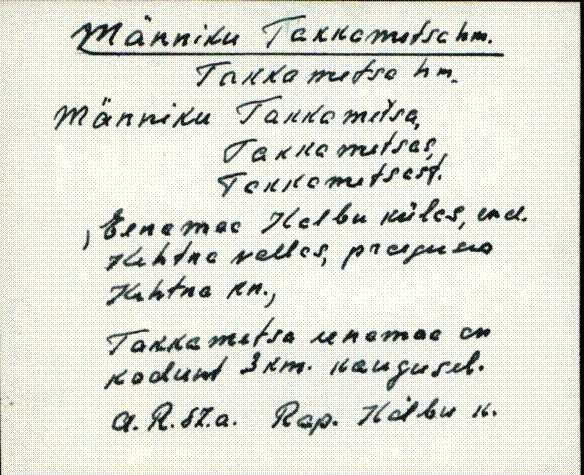 Männiku Takkametsa hm.
Takkametsa hm.
Männiku Takkametsa,
Takkametsas,
Takkametsast.
, Eenamaa Kälbu külas, end.
Kehtna vallas, praegune
Kehtna kn.,
Takkametsa eenamaa on
kodunt 3 km. kaugusel.
A. R. 57. a. Rap. Kälbu k.